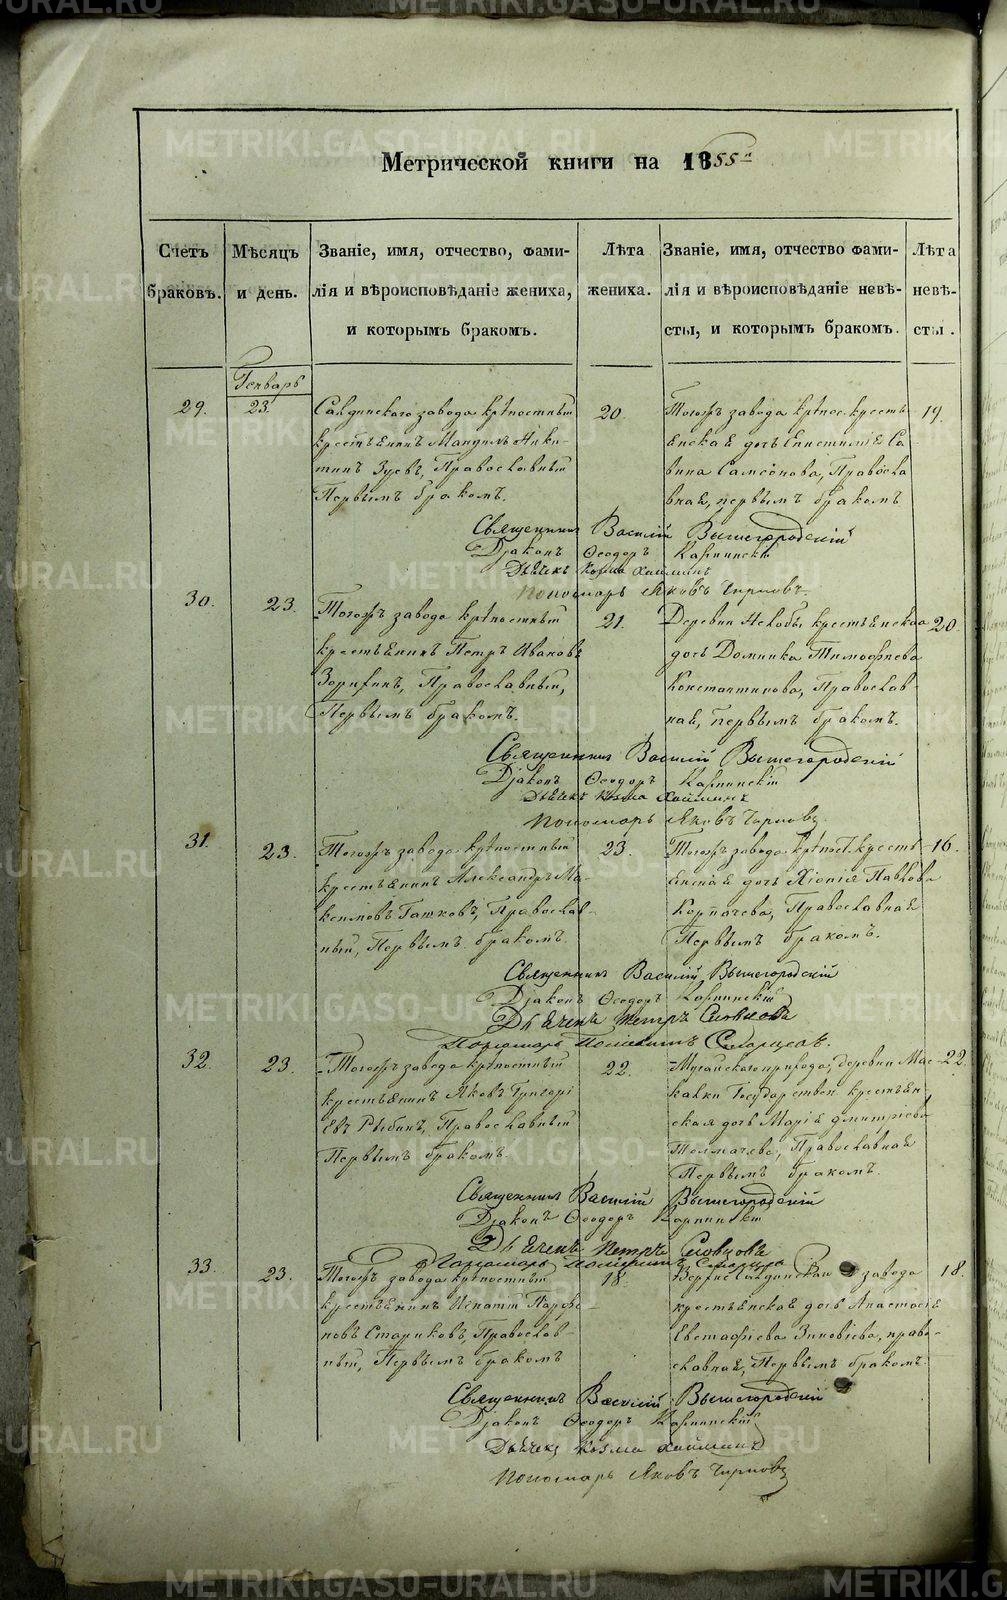 Метрической книги на 1855й
Счетъ браковъ.
Мѣсяцъ и день.
Званіе, имя, отчество, фами-
лія и вѣроисповѣданіе жениха,
и которымъ бракомъ.
Лѣта жениха.
Званіе, имя, отчество фами-
лія и вѣроисповѣданіе невѣ-
сты, и которымъ бракомъ.
Лѣта невѣ-
сты.
Генварь
29.
23.
Салдинскаго завода крѣпостный
крестьянинъ Мандилъ Ники-
тинъ Зуевъ, Православный
Первымъ бракомъ.
20.
Тогожъ завода крѣпос. крестъ
янская дочь Епистимія Са-
вина Самсонова, Правосла
вная, первымъ бракомъ
19.
Священникъ Василій Вышегородскій
Діаконъ Ѳеодоръ Карпинскій
Дьячекъ Козма
Пономарь Яковъ Чирковъ.
30.
23.
Тогожъ завода крѣпостный
крестьянинъ Петръ Ивановъ
Зорихинъ, Православный,
Первымъ бракомъ.
21.
Деревни крестьянская
дочь Домника Тимофиева
Константинова, Православ-
ная, первымъ бракомъ.
20.
Священникъ Василій Вышегородскій
Діаконъ Ѳеодоръ Карпинскій
Дьячекъ Козма
Пономарь Яковъ Чирковъ.
31.
23.
Тогожъ завода крѣпостный
крестьянинъ Александръ Ма-
ксимовъ Гашковъ, Православ-
ный, Первымъ бракомъ.
23.
Тогожъ завода крѣпост. крестъ
янская дочь Хіонія Павлова
Корпачева, Православная
Первымъ бракомъ.
16.
Священникъ Василій Вышегородскій
Діаконъ Ѳеодоръ Карпинскій
Дьячекъ Петръ Словцовъ
Пономарь
32.
23.
Тогожъ завода крѣпостный
крестьянинъ Яковъ Григорі
евъ Рыбинъ, Православный
Первымъ бракомъ.
22.
Мугайскаго прихода, деревни Мас-
калки Государствен. крестьян-
ская дочь Марія Дмитріева
Толмачева, Православная
Первымъ бракомъ.
22.
Священникъ Василій Вышегородскій
Діаконъ Ѳеодоръ Карпинскій
Дьячекъ Петръ Словцовъ
Пономарь
33.
23.
Тогожъ завода крѣпостный
крестьянинъ Игнатій Парфе-
новъ Стариковъ, Православ-
ный, Первымъ бракомъ
18.
Верхнесалдинскаго завода
крестьянская дочь Анастасія
Евстафіева Зиновіева, право-
славная, Первымъ бракомъ.
18.
Священникъ Василій Вышегородскій
Діаконъ Ѳеодоръ Карпинскій
Дьячекъ Козма
Пономарь Яковъ Чирковъ
METRIKI.GASO-URAL.RU